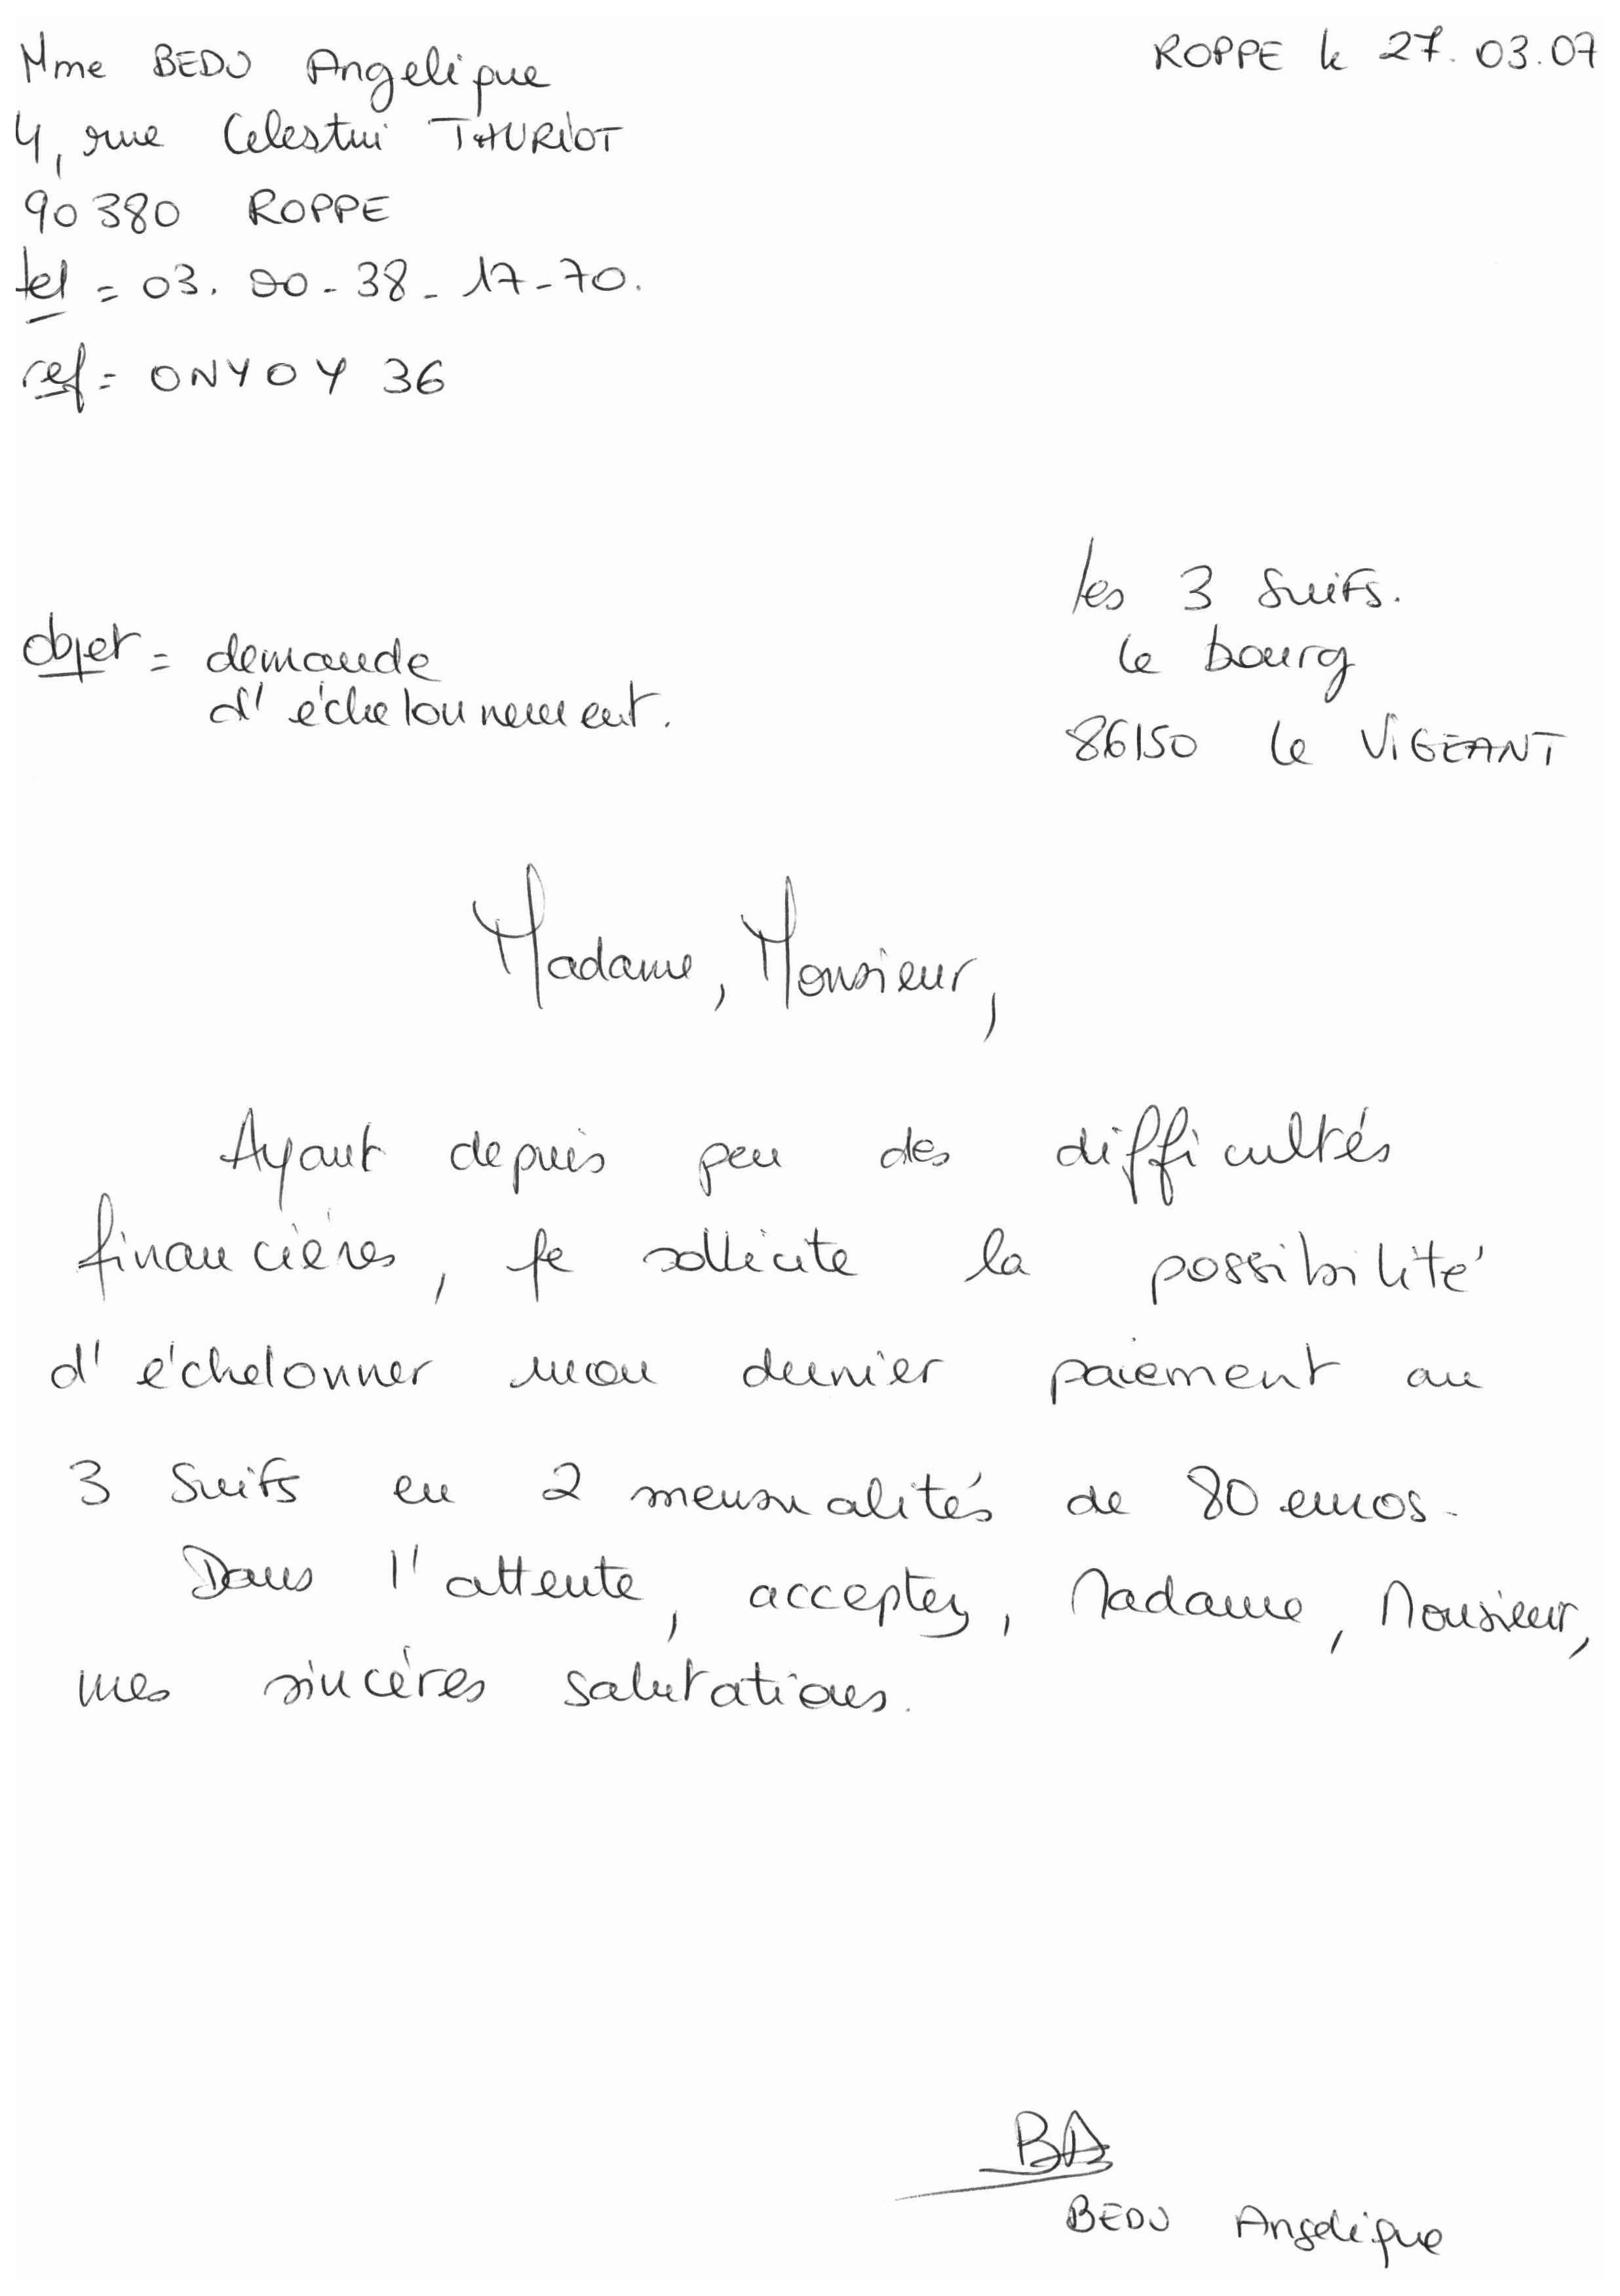 Mme BEDU Angelique
ROPPE le 27.03.07
4, rue Celestin THURIOT
90380 ROPPE
tel = 03.80-38-17-70.
ref = ONYOY 36
les 3 Suifs.
le bourg
86150 le ViGEANT
objet = demande
d'échelonnement.
Madame, Monsieur,
Ayant depuis peu des difficultés
financières, je sollicite la possibilité
d'échelonner mon dernier paiement au
3 Suifs en 2 mensualités de 80 euros.
Dans l'attente, acceptez, Madame, Monsieur,
mes sincères salutations.
BA
BEDU Angelique